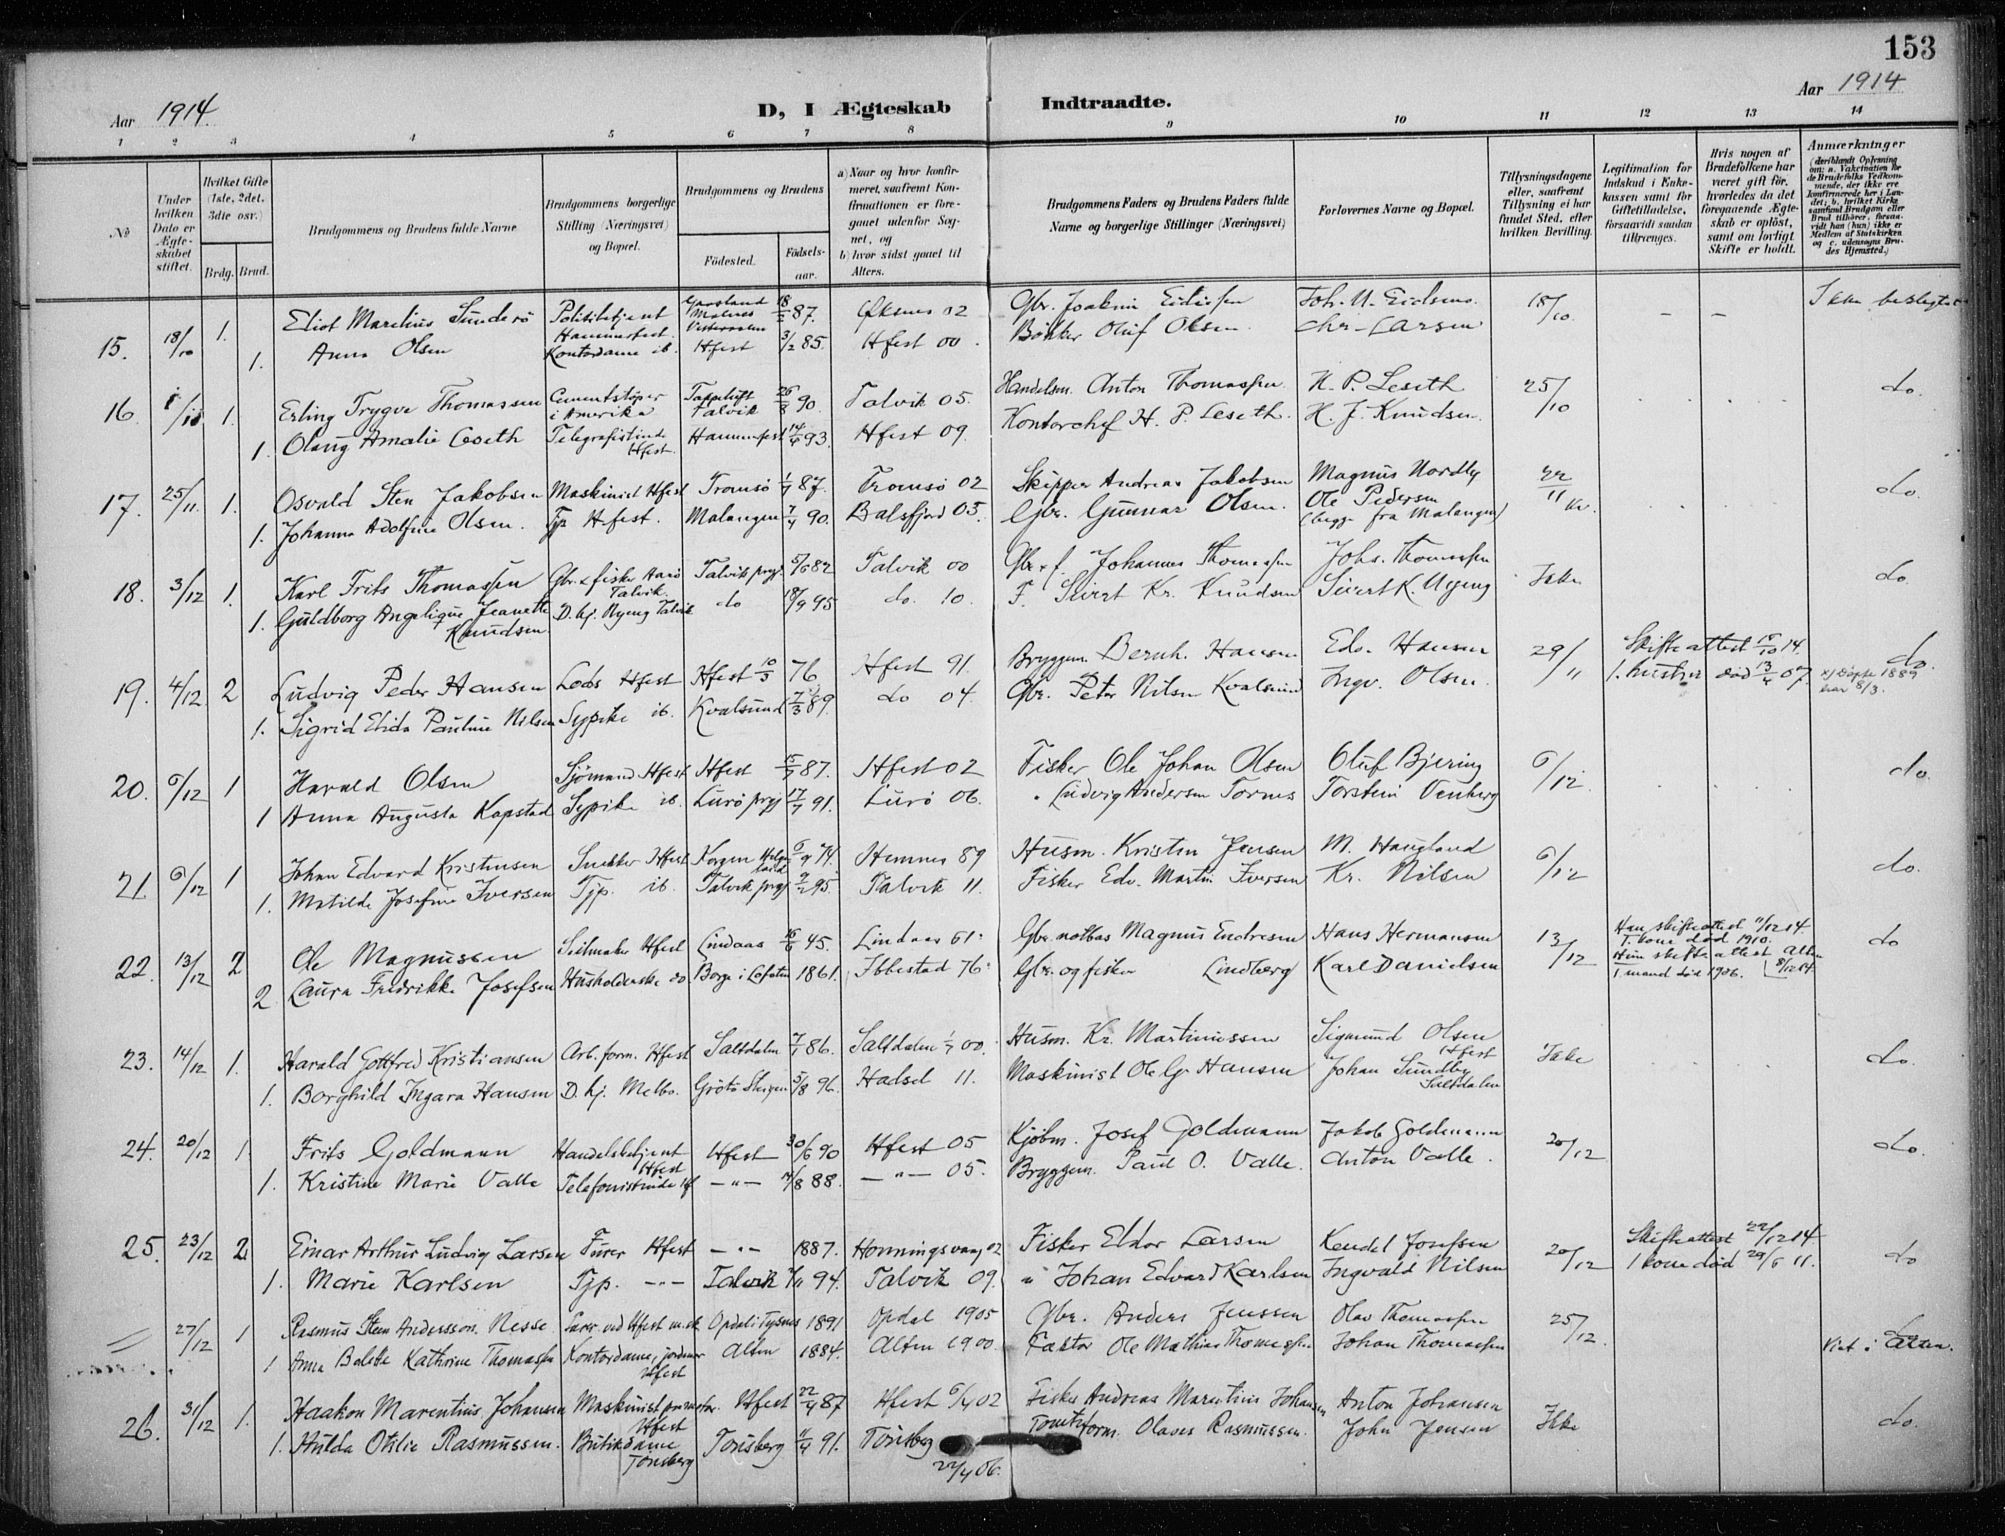 153
Aar 1914.
D, I Ægteskab Indtraadte.
Aar 1914
1 2 3 4 5 6 7 8 9 10 11 12 13 14
№
Under hvilken Dato er Ægteskabet stiftet.
Hvilket Gifte (1ste, 2det, 3die osv.)
Brdg. Brud.
Brudgommens og Brudens fulde Navne
Brudgommens borgerlige Stilling (Næringsvei) og Bopæl.
Brudgommens og Brudens
Fødested.
Fødselsaar.
a) Naar og hvor konfirmeret, saafremt Konfirmationen er foregaaet udenfor Sognet, og
b) hvor sidst gaaet til Alters.
Brudgommens Faders og Brudens Faders fulde Navne og borgerlige Stillinger (Næringsvei)
Forlovernes Navne og Bopæl.
Tillysningsdagene eller, saafremt Tillysning ei har fundet Sted, efter hvilken Bevilling.
Legitimation for Indskud i Enkekassen samt for Giftetilladelse, forsaavidt saadan tiltrænges.
Hvis nogen af Brudefolkene har været gift før, hvorledes da det foregaaende Ægteskab er opløst, samt om lovligt Skifte er holdt.
Anmærkninger
(deriblandt Oplysning om: a. Vakcination for de Brudefolks Vedkommende, der ikke ere konfirmerede her i Landet; b. hvilket Kirkesamfund Brudgom eller Brud tilhører, forsaavidt han (hun) ikke er Medlem af Statskirken og c. udensogns Brudes Hjemsted.)
15. 18/10 1. Eliot Marelius Sunderø Politibetjent Hammerfest. 18/2 87. Øksnes 02 Gbr. Joakim 18/10. – –
1. Anna Olsen Kontordame ib. Hfest 3/2 85. Hfest 00. Bökker Oluf Olsen. Chr. Larsen
16. 1. Erling Trygve Thomassen Cementstøper i Amerika Talvik 26/8 90. Talvik 05. Handelsm. Anton Thomassen H. P. Leseth 25/10 do.
1. Olaug Amalie Leseth Telegrafistinde Hfest. Hammerfest 14/4 93. Hfest 09. Kontorchef H. P. Leseth. H. J. Knudsen.
17. 25/11. 1. Osvald Sten Jakobsen Maskinist Hfest Tromsö 87. Tromsö 02 Skipper Andreas Jakobsen Magnus Nordby 22/11 do.
1. Johanna Adolfine Olsen. Tjp Hfest. Malangen 7/4 90. Balsfjord 05. Gbr. Gunnar Olsen. Ole Pedersen (begge fra Malangen)
18. 3/12 1. Karl Frits Thomassen Gbr. & fisker Talvik. Talvik prgj. 5/6 82 Talvik 00 Gbr. & f. Johannes Thomassen Johs. Thomassen Ikke do.
1. Guldborg Angelique Jeanette Knudsen D. hj. Talvik do 18/9 95 do. 10. F. Sivert Kr. Knudsen
19. 4/12 2 Ludvig Peder Hansen Lods Hfest Hfest 10/5 76 Hfest 91. Bryggem. Bernh. Hansen Edv. Hansen 29/11 Skifteattest 15/10 14. do.
1. Sigrid Elida Pauline Nilsen Sypike ib. Kvalsund 7/3 89. do 04. Gbr. Peter Nilsen Kvalsund Ingv. Olsen. 1. hustru död 13/4 07.
20. 6/12 1 Harald Olsen Sjömand Hfest Hfest 87. Hfest 02 Fisker Ole Johan Olsen Oluf Bjering 6/12. do.
1 Anna Augusta Kopstad Sypike ib. Lurö prgj 91. Lurö 06. " Ludvig Andersen Tornes Torstein Venberg
21. 6/12 1 Johan Edvard Kristensen Snekker Hfest Korgen Helgeland 74. Hemnes 89 Husm. Kristen Jensen M. Haugland 6/12 do.
1. Matilde Josefine Iversen Tjp. ib. Talvik prgj 95. Talvik 11. Fisker Edv. Martin Iversen Kr. Nilsen
22. 13/12 2 Ole Magnussen Seilmaker Hfest Lindaas 45. Lindaas 61. Gbr. Magnus Endresen Hans Hermansen 13/12 Han skifteattest 11/12 14. 1. kone död 1910. do
2 Laura Fredrikke Josefsen Husholderske do. Borge i Lofoten 1861. Ibbestad 76. Gbr. og fisker Lindberg Karl Danielsen Hun skifteattest Alten 8/12 14. 1. mand död 1906.
23. 14/12 1. Harald Gottfred Kristiansen Arb. form. Hfest Saltdalen 86. Saltdalen 00. Husm. Kr. Martinussen Sigmund Olsen Hfest Ikke do.
1. Borghild Ingara Hansen D. hj. Melbo. 5/8 96. Hadsel 11. Maskinist Ole Hansen Johan Sundby Saltdalen
24. 20/12 1. Frits Goldmann Handelsbetjent Hfest Hfest 30/6 90 Hfest 05 Kjöbm. Josef Goldmann Jakob Goldmann 20/12 do.
1. Kristine Marie Valle Telefonistinde – " – 88. – " – 05. Bryggem. Paul O. Valle. Anton Valle.
25. 23/12 2. Einar Arthur Ludvig Larsen Furer Hfest – " – 1887. Honningsvaag 02 Fisker Eldor Larsen Kendel Josefsen 20/12 Skifteattest 22/12 14 do
1. Marie Karlsen Tjp. – " – Talvik 94. Talvik 09. " Johan Edvard Karlsen Ingvald Nilsen 1 kone död 29/6 11.
27/12 1 Rasmus Steen Andersson Nesse 1891 Opdal 1905 Gbr. Anders Jenssen Olav Thomassen 25/12. do
1 Anna Bolette Kathrine Thomassen Kontordame, Hfest Alten 1884. Alten 1900. Faktor Ole Mathias Thomassen Johan Thomassen Viet i Alten.
26. 31/12 1. Haakon Marentius Johansen Maskinist Hfest Hfest 22/4 87 Hfest 02 Fisker Andreas Marentius Johansen Anton Johansen Ikke do.
1. Hulda Otilie Rasmussen. Butikdame Tönsberg Tönsberg 11/4 91. Tönsberg 22/4 06. Olaves Rasmussen. John Jensen